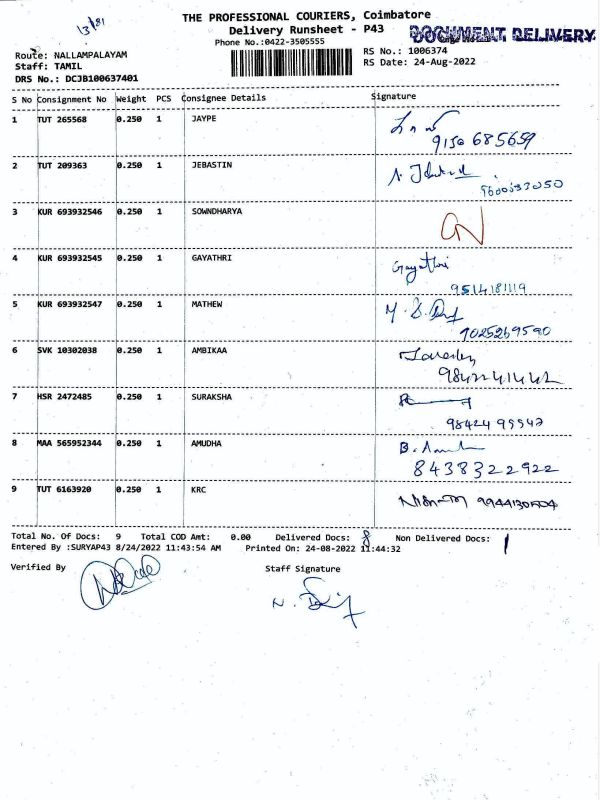 13/81
THE PROFESSIONAL COURIERS, Coimbatore
Delivery Runsheet - P43
DOCUMENT DELIVERY
Phone No.:0422-3505555
Route: NALLAMPALAYAM
RS No.: 1006374
Staff: TAMIL
RS Date: 24-Aug-2022
DRS No.: DCJB100637401
S No Consignment No Weight PCS Consignee Details Signature
1 TUT 265568 0.250 1 JAYPE
9150685659
2 TUT 209363 0.250 1 JEBASTIN
3 KUR 693932546 0.250 1 SOWNDHARYA
4 KUR 693932545 0.250 1 GAYATHRI Gayathri
9514181119
5 KUR 693932547 0.250 1 MATHEW
7025269590
6 SVK 10302038 0.250 1 AMBIKAA
9842241442
7 HSR 2472485 0.250 1 SURAKSHA
8 MAA 565952344 0.250 1 AMUDHA
8438322922
9 TUT 6163920 0.250 1 KRC
Total No. Of Docs: 9 Total COD Amt: 0.00 Delivered Docs: 8 Non Delivered Docs: 1
Entered By :SURYAP43 8/24/2022 11:43:54 AM Printed On: 24-08-2022 11:44:32
Verified By Staff Signature